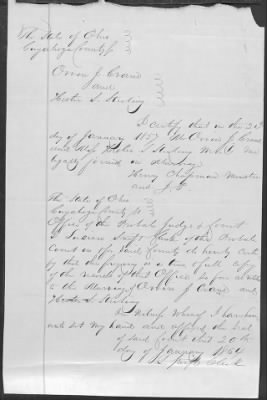 The State of Ohio
Cuyahoga County ss
Orson J. Crane
and
Hester S. Starling
I certify that on the 2d
day of January 1857 Mr Orson J. Crane
and Miss Hester S. Starling were
legally joined in Marriage
Henry Chapman Minister
and J.P.
The State of Ohio
Cuyahoga County ss
Office of the Probate Judge & Court
I Clerk of the Probate
Court of the said County do hereby Certify
that the foregoing is a true & full copy
of the record of this Office in so far as relates
to the Marriage of Orson J. Crane and
Hester S. Starling
In Witness Whereof I have hereunto
set my hand and affixed the Seal
of said Court this 20th
day of January 1864
Clerk